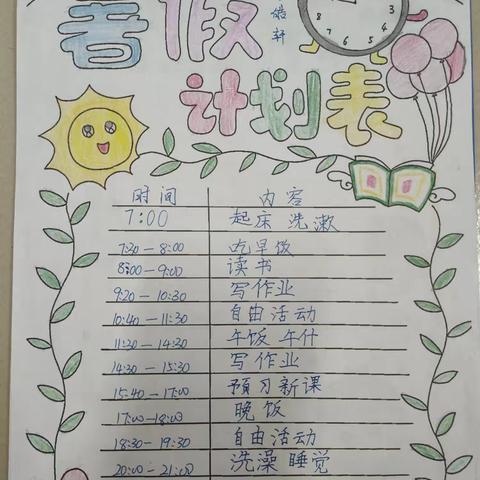 皓轩
暑假
计划表
时间 内容
7:00 起床 洗漱
7:30-8:00 吃早饭
8:00-9:00 读书
9:20-10:30 写作业
10:40-11:30 自由活动
11:30-14:30 午饭 午什
14:30-15:30 写作业
15:40-17:00 预习新课
17:00-18:00 晚饭
18:30-19:30 自由活动
20:00-21:00 洗澡 睡觉